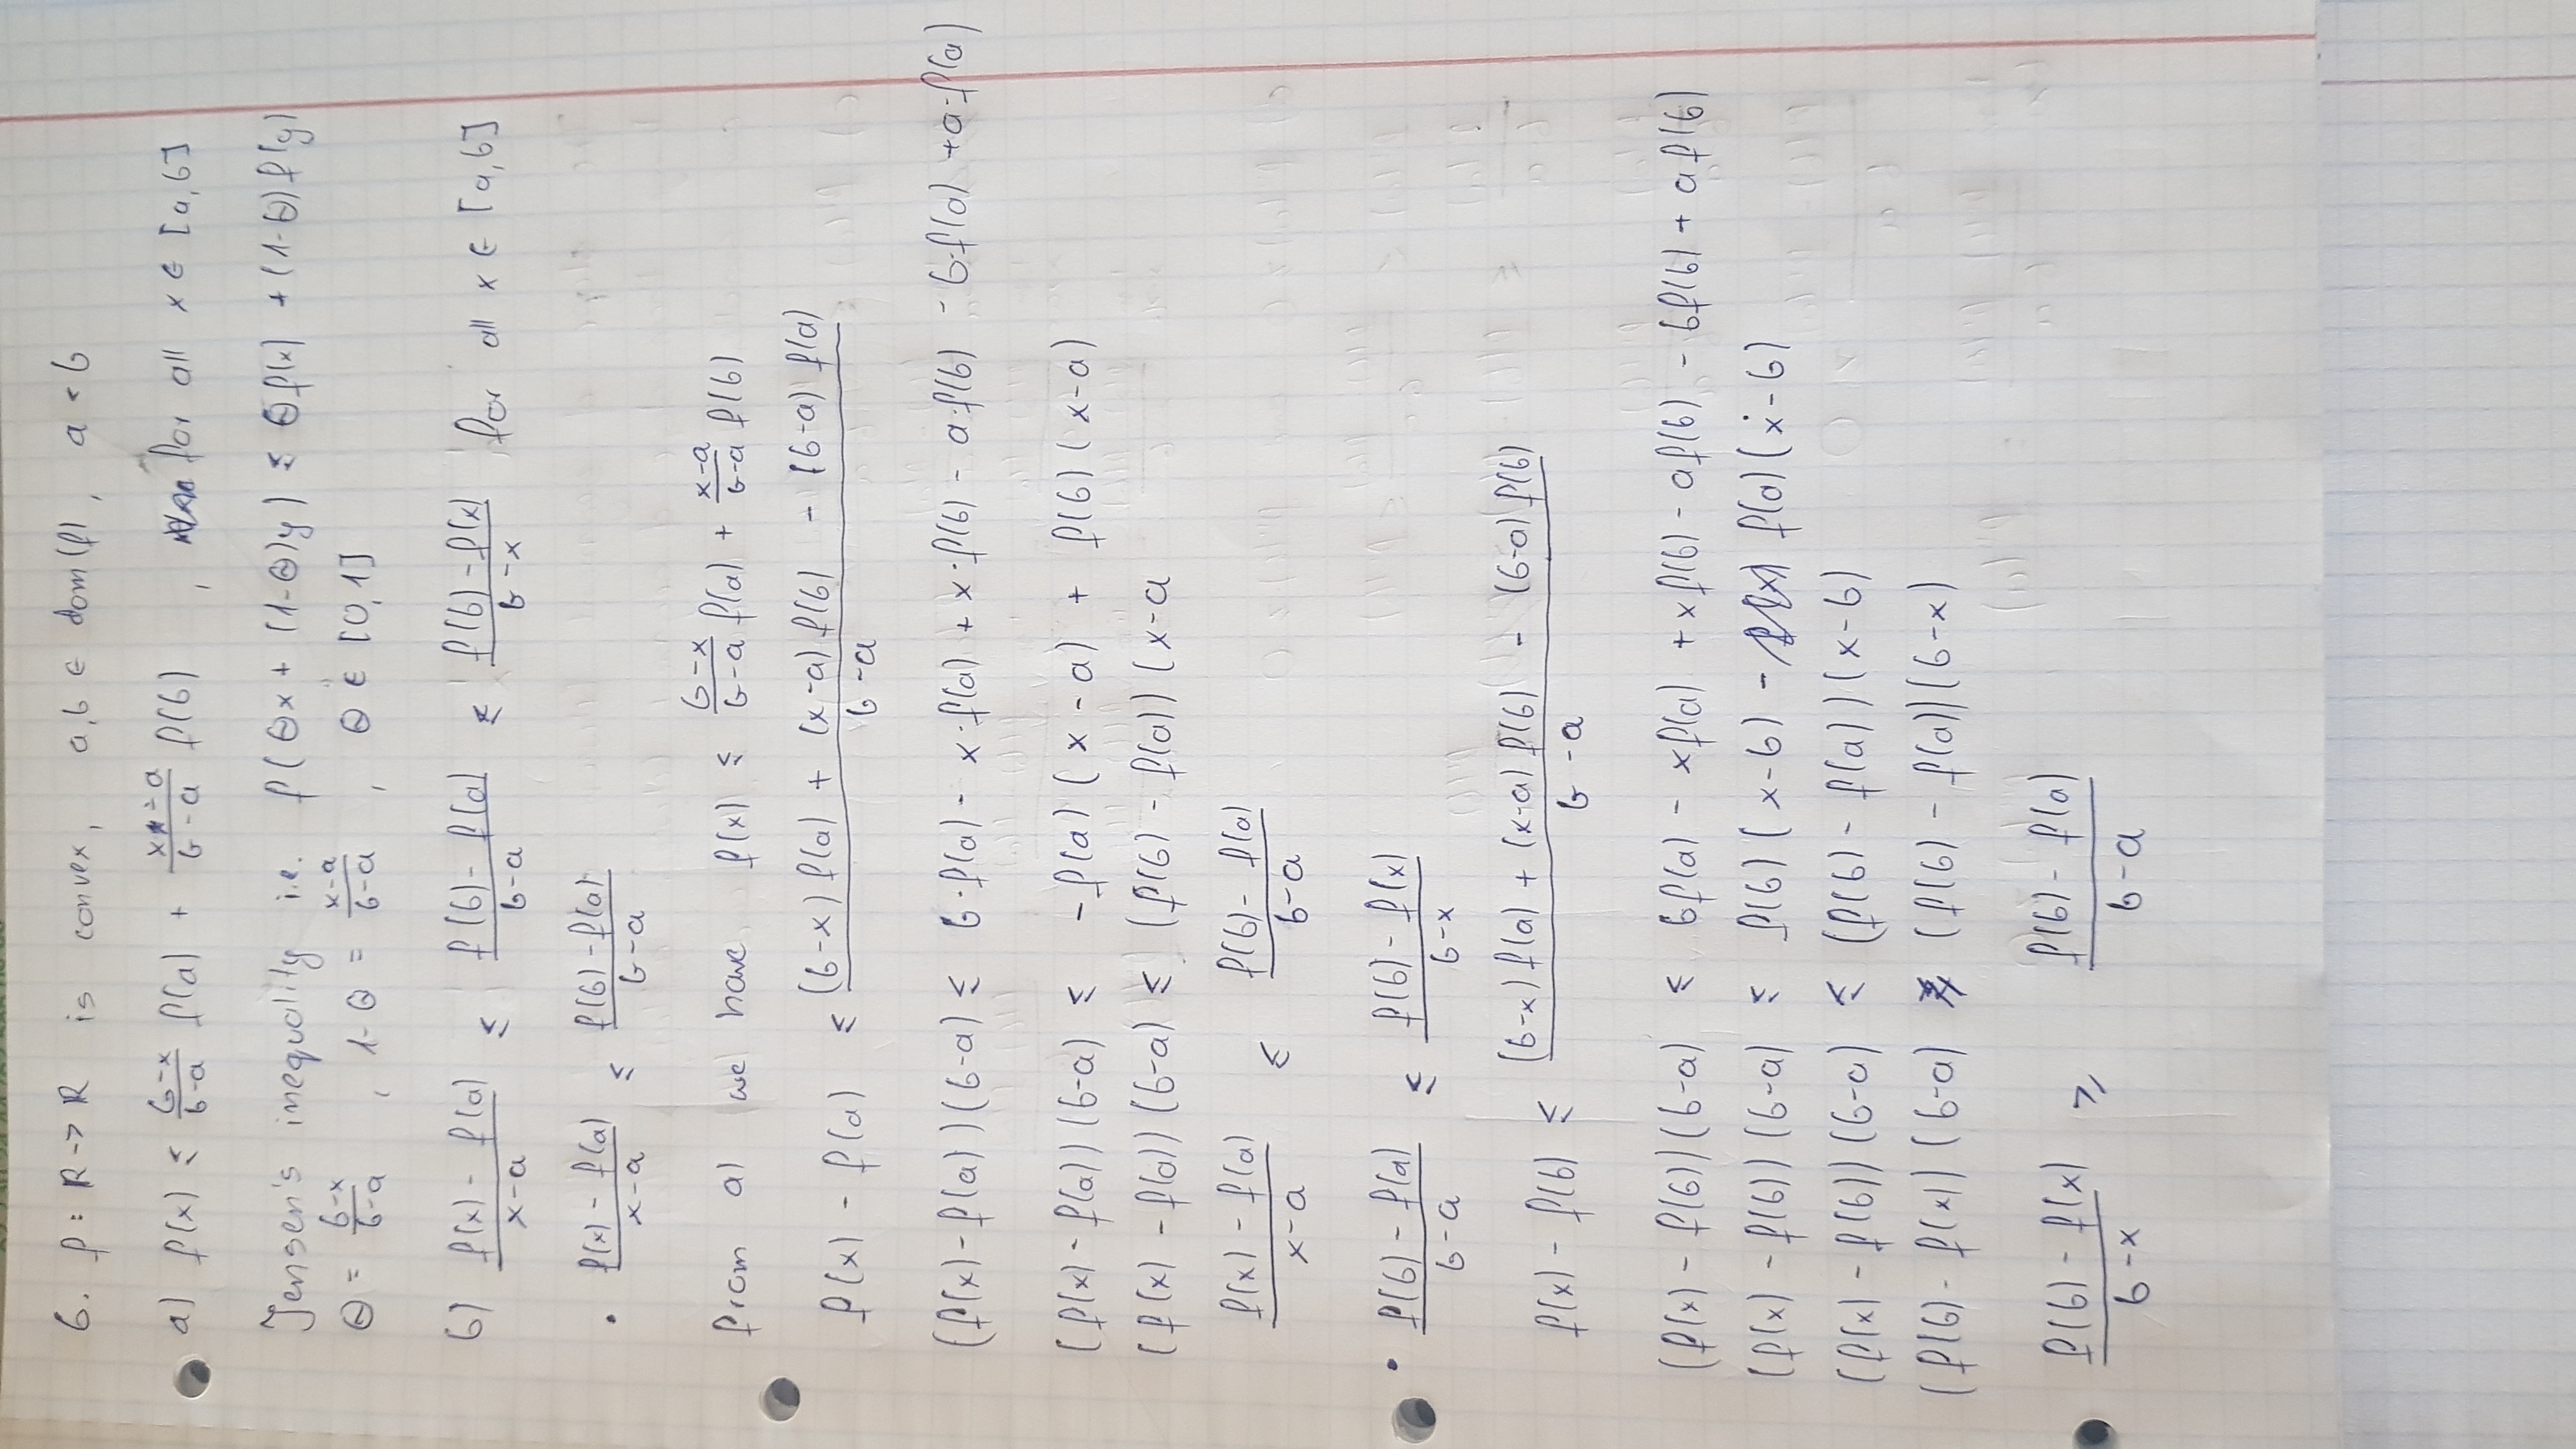 6. f : R -> R is convex, a,b ∈ dom(f), a < b
a) f(x) ≤ (b-x)/(b-a) f(a) + (x-a)/(b-a) f(b) , for all x ∈ [a,b]
Jensen's inequality i.e. f(Θx + (1-Θ)y) ≤ Θf(x) + (1-Θ)f(y)
Θ = (b-x)/(b-a) , 1-Θ = (x-a)/(b-a) , Θ ∈ [0,1]
b) (f(x) - f(a))/(x-a) ≤ (f(b) - f(a))/(b-a) ≤ (f(b) - f(x))/(b-x) for all x ∈ [a,b]
• (f(x) - f(a))/(x-a) ≤ (f(b) - f(a))/(b-a)
from a) we have f(x) ≤ (b-x)/(b-a) f(a) + (x-a)/(b-a) f(b)
f(x) - f(a) ≤ ((b-x) f(a) + (x-a) f(b) - (b-a) f(a))/(b-a)
(f(x) - f(a))(b-a) ≤ b·f(a) - x·f(a) + x·f(b) - a·f(b) - b·f(a) + a·f(a)
(f(x) - f(a))(b-a) ≤ -f(a)(x-a) + f(b)(x-a)
(f(x) - f(a))(b-a) ≤ (f(b) - f(a))(x-a
(f(x) - f(a))/(x-a) ≤ (f(b) - f(a))/(b-a)
• (f(b) - f(a))/(b-a) ≤ (f(b) - f(x))/(b-x)
f(x) - f(b) ≤ ((b-x) f(a) + (x-a) f(b) - (b-a) f(b))/(b-a)
(f(x) - f(b))(b-a) ≤ bf(a) - xf(a) + xf(b) - af(b) - bf(b) + af(b)
(f(x) - f(b))(b-a) ≤ f(b)(x-b) - f(a)(x-b)
(f(x) - f(b))(b-a) ≤ (f(b) - f(a))(x-b)
(f(b) - f(x))(b-a) ≥ (f(b) - f(a))(b-x)
(f(b) - f(x))/(b-x) ≥ (f(b) - f(a))/(b-a)